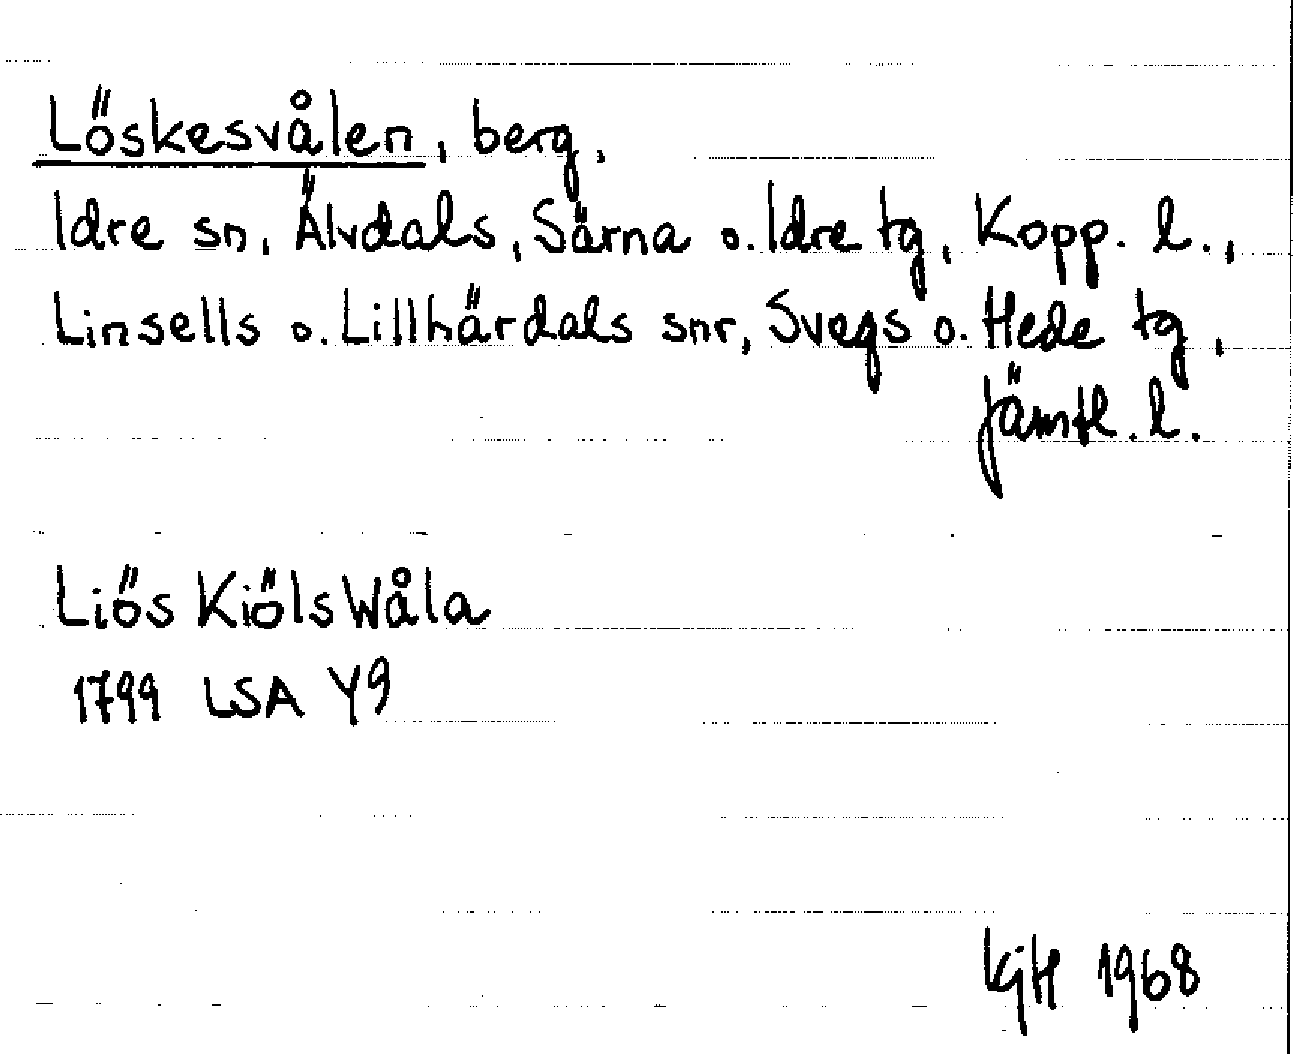 Löskesvålen, berg,
Idre sn, Älvdals, Särna o. Idre tg, Kopp. l.,
Linsells o. Lillhärdals snr, Svegs o. Hede tg,
Jämtl. l.
Liös Kiöls Wåla
1799 LSA Y9
KjH 1968